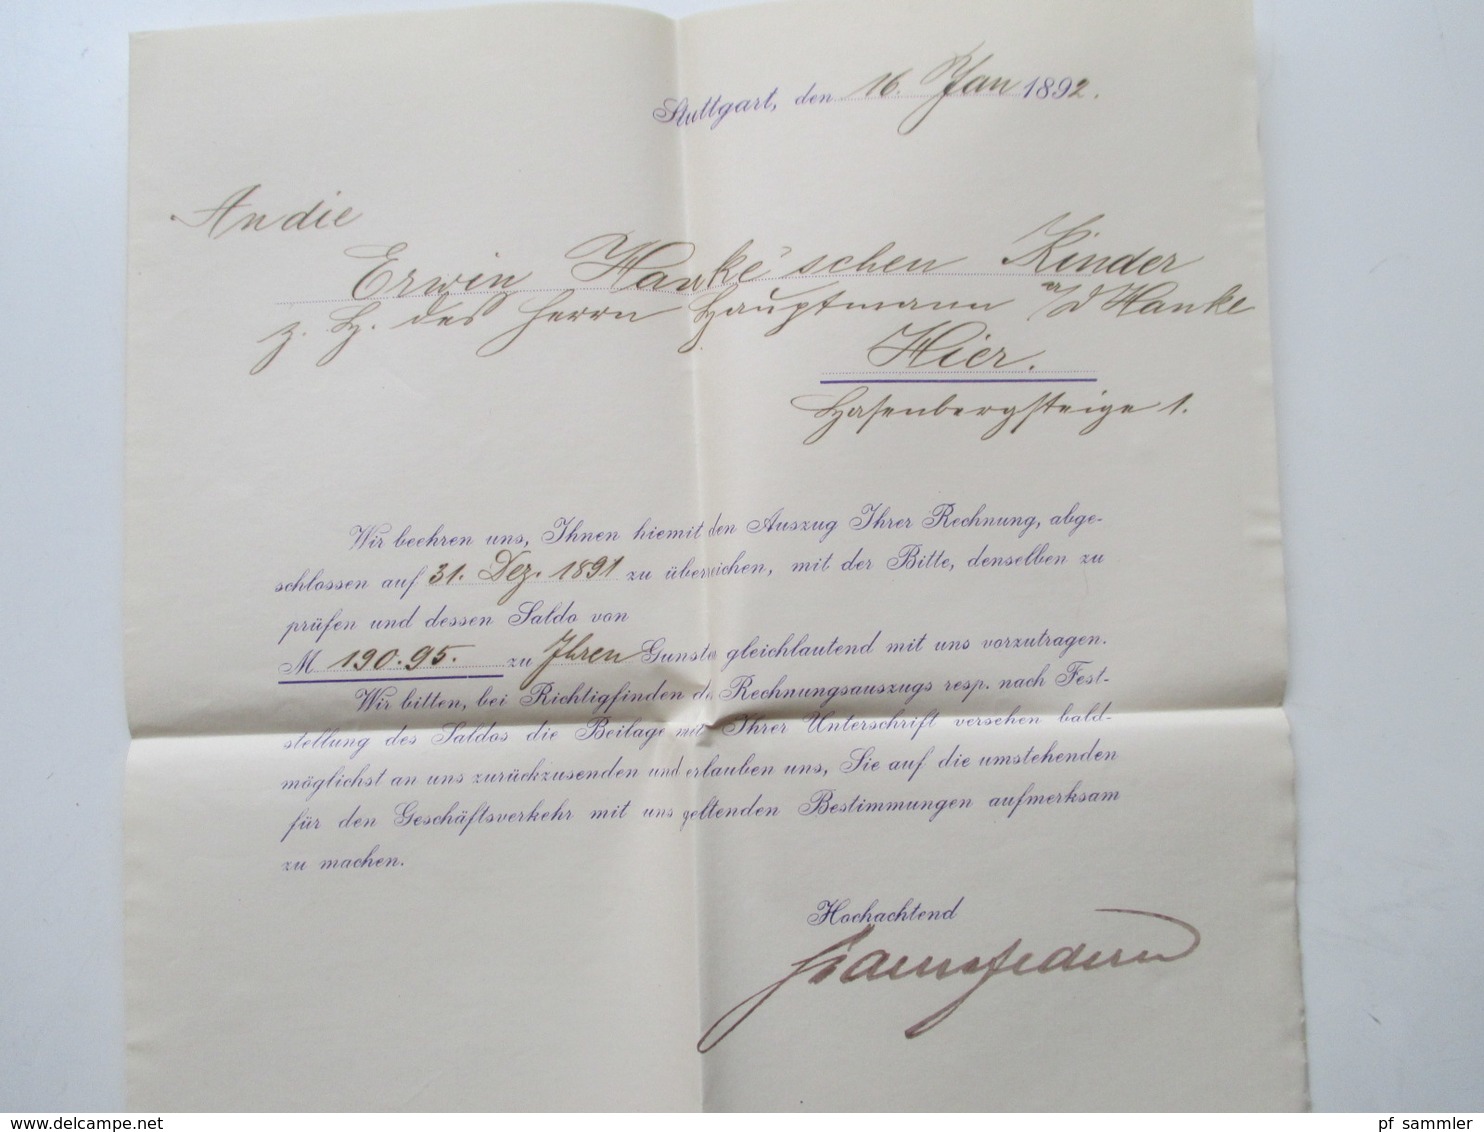 Stuttgart, den 16. Jan 1892.
An die
Erwin Hanke'schen Kinder
z. H. des Herrn Hauptmann a/D Hanke
Hier.
Hasenbergsteige 1.
Wir beehren uns, Ihnen hiemit den Auszug Ihrer Rechnung, abge-
schlossen auf 31. Dez. 1891 zu überreichen, mit der Bitte, denselben zu
prüfen und dessen Saldo von
M 190.95. zu Ihren Gunsten gleichlautend mit uns vorzutragen.
Wir bitten, bei Richtigfinden des Rechnungsauszugs resp. nach Fest-
stellung des Saldos die Beilage mit Ihrer Unterschrift versehen bald-
möglichst an uns zurückzusenden und erlauben uns, Sie auf die umstehenden
für den Geschäftsverkehr mit uns geltenden Bestimmungen aufmerksam
zu machen.
Hochachtend
pf sammler